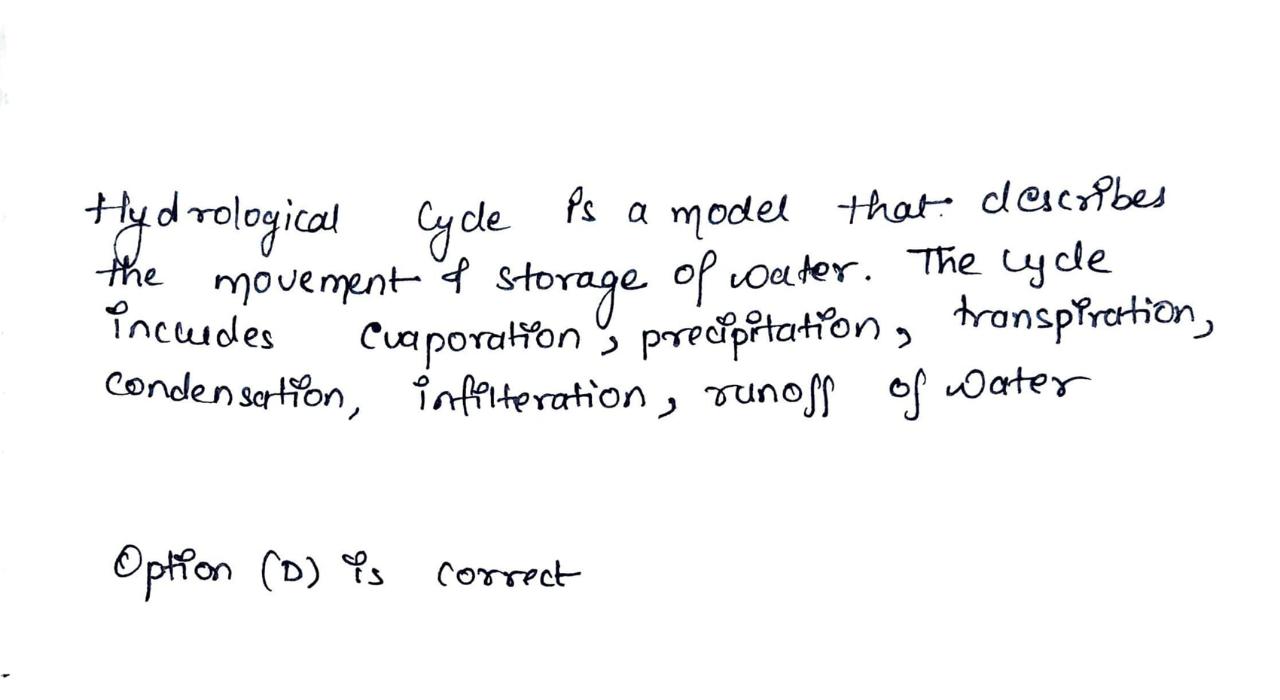 Hydrological Cycle is a model that describes
the movement & storage of water. The cycle
includes evaporation, precipitation, transpiration,
condensation, infilteration, runoff of water
Option (D) is correct